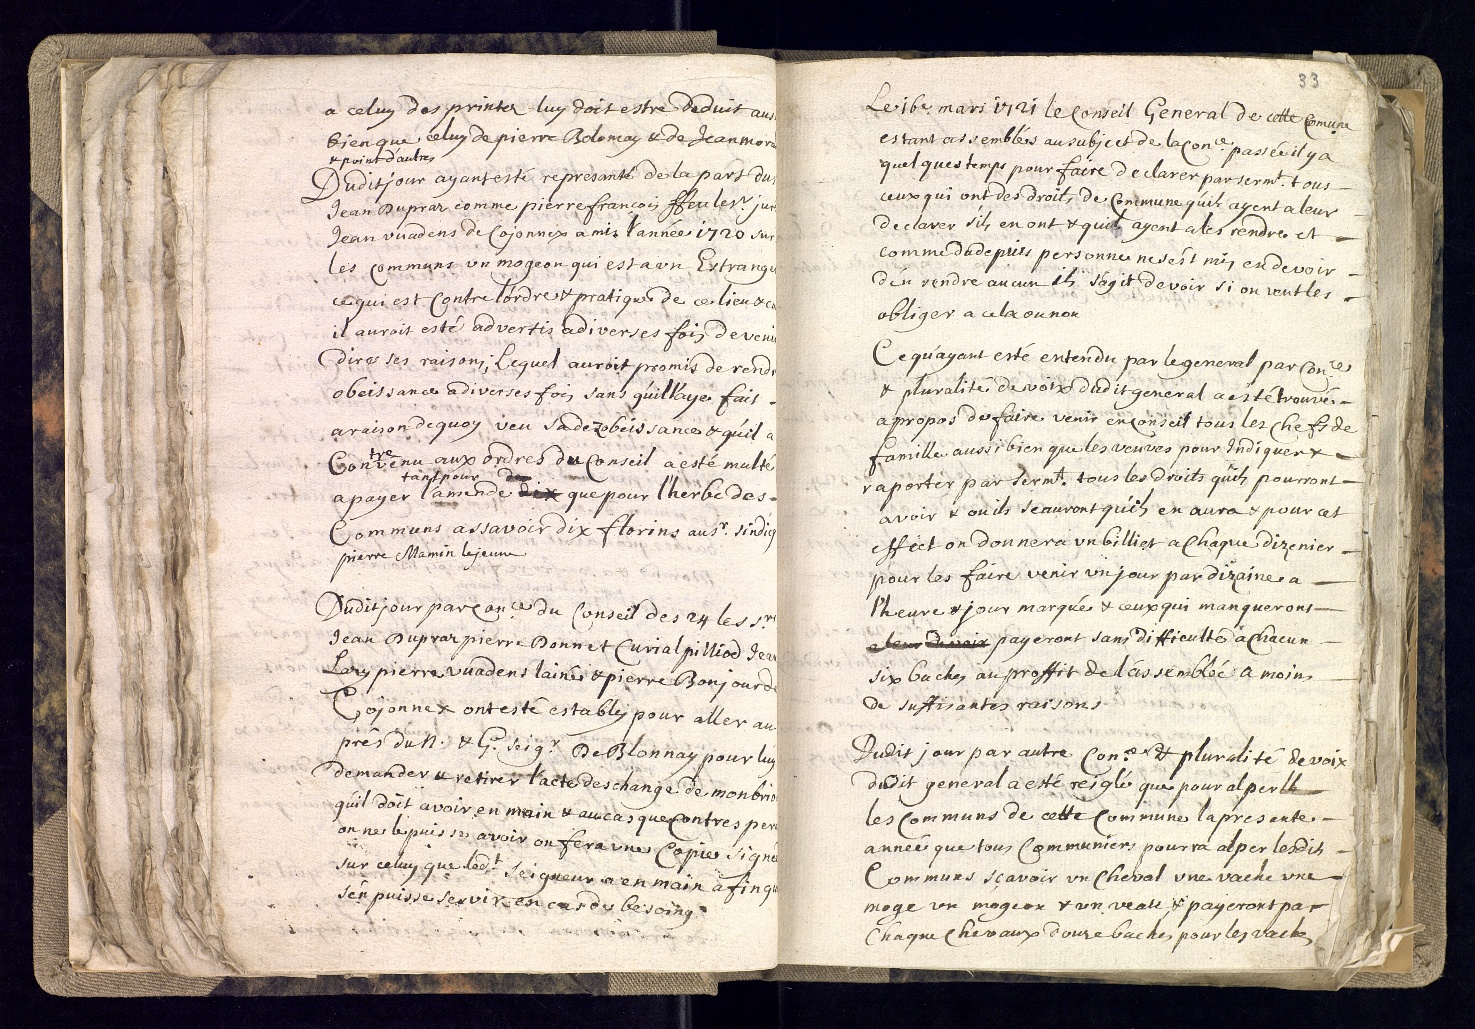 a celuy des printer luy doit estre deduit aus
bien que celuy de pierre Bolomay & de Jean mora
& point d'autres
Dudit jour ayant esté represanté de la part du s
Jean Dupraz comme pierre françois ffeu les r jur
Jean vuadens de Cojonnex a mis l'année 1720 sur
les communs un mogeon qui est a vn Estrange
ce qui est Contre l'ordre & pratique de ce lieu & co
il auroit esté advertis a diverses fois de venir
dire ses raisons, Lequel auroit promis de rendr
obeissance a diverses fois sans qu'il l'aye fait -
a raison de quoy veu sa dezobeissance & qu'il a
Contrevenu aux ordres du Conseil a esté multé
tant pour de
a payer l'amende dix que pour l'herbe des -
Communs assavoir dix florins au sr. sindiq
pierre Mamin le jeune
Dudit jour par con.ce du Conseil des 24 les s.rs
Jean Dupraz pierre Bonnet Curial pilliod Jean
Loys pierre vuadens lainé & pierre Bonjour de
Cojonnex ont esté establis pour aller au
prés du N. & G. seigr De Blonnay pour luy
demander & retirer l'acte d'eschange de monbrio
qu'il doit avoir en main & au cas que contres per
on ne le puisse avoir on fera vne Copie signé
sur celuy que ledt seigneur a en main afin qu
s'en puisse servir en cas de besoing
33
Le 16e. mars 1721 le Conseil General de cette Comune
estant assemblés au subjet de la con.ce passée il y a
quelques temps pour faire declarer par serm.t tous -
ceux qui ont des droits de Commune qu'ils ayent a leur
declarer s'ils en ont & qu'ils ayent a les rendre et -
comme du depuis personne ne s'est mis en devoir
d'en rendre aucun il s'agit de voir si on veut les -
obliger a cela ou non
Ce qu'ayant esté entendu par le general par con.ce
& pluralité de voix dudit general a esté trouvé -
a propos de faire venir en Conseil tous les chefs de
famille aussi bien que les veuves pour Indiquer & -
raporter par serm.t tous les droits qu'ils pourront -
avoir & ou ils scauront qu'ils en aura & pour cet
effect on donnera vn billiet a Chaque dizenier -
pour les faire venir vn jour par dizaine a -
l'heure & jour marquée & ceux qui manqueront -
a leur devoir payeront sans difficulté a chacun -
six baches au proffit de l'assemblée a moins
de suffisantes raisons
Dudit jour par autre Con.ce & pluralité de voix
dudit general a esté reiglé que pour alper
les Communs de cette Commune la presente -
année que tous Communiers pourra alper lesdits
Communs sçavoir vn cheval vne vache vne -
moge vn mogeon & vn veau, & payeront par
Chaque Chevaux douze baches pour les vaches